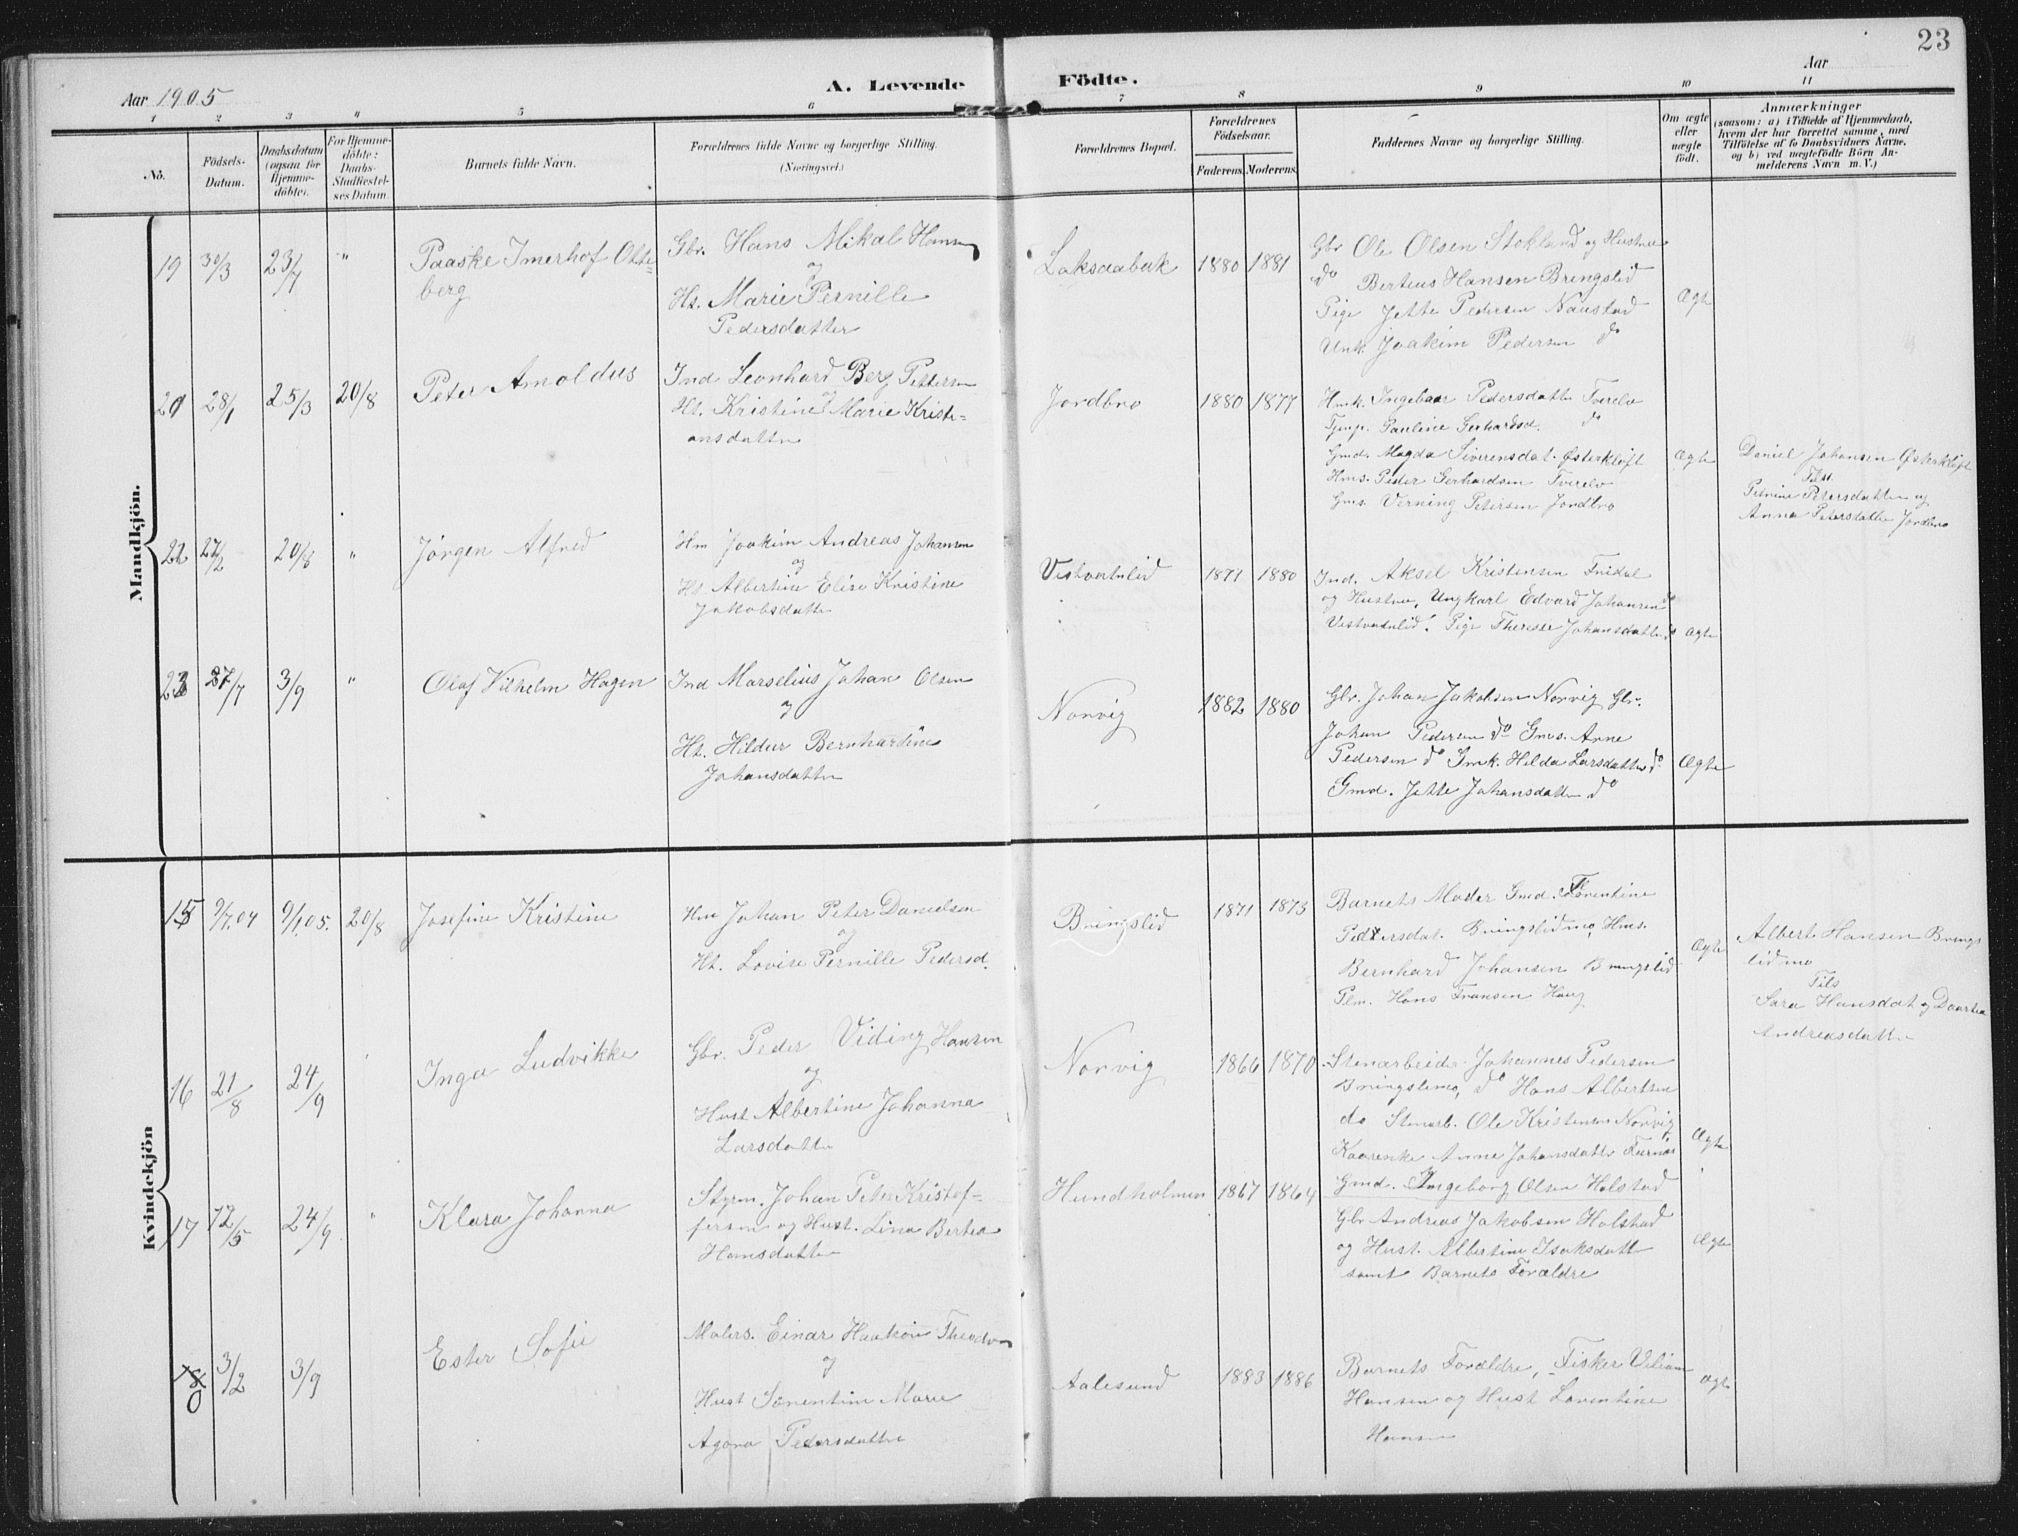 23
Aar 1905
A. Levende Födte.
Aar
1 2 3 4 5 6 7 8 9 10 11
No.
Födsels-Datum.
Daabsdatum (ogsaa for Hjemme-döbte).
For Hjemme-döbte: Daabs-Stadfæstel-ses Datum.
Barnets fulde Navn.
Forældrenes fulde Navne og borgerlige Stilling.
(Næringsvei.)
Forældrenes Bopæl.
Forældrenes Födselsaar.
Faderens. Moderens.
Faddernes Navne og borgerlige Stilling.
Om ægte eller uægte födt.
Anmærkninger
(saasom: a) i Tilfælde af Hjemmedaab,
hvem der har forrettet samme, med
Tilföielse af to Daabsvidners Navne,
og b) ved uægtefödte Börn An-
melderens Navn m. V.)
Mandkjön.
19 30/3 23/7 "
Paaske Imerhof Otte=
berg
Gbr. Hans Mikal Hansen
og
Ht. Marie Pernille
Pedersdatter
Laksaabak 1880 1881
Gbr Ole Olsen Stokland og Hustru
do Berteus Hansen Bringslid
Pige Jette Pedersen Naustad
Unk. Joakim Pedersen do
Ægte
28/1 25/3 20/8
Peter Arnoldus
Ind Leonhard Berg Pettersen
og
Ht. Kristine Marie Kristi=
ansdatter
Jordbro 1880 1877
Hmk. Ingebaar Pedersdatter Tverelv
Tjenp. Pauline Gerhardsd. do
Gmd. Magda Siverensdat. Østerkløft
Hms. Peder Gerhardsen Tverelv
Gms. Verning Petersen Jordbro
Ægte
Daniel Johansen Østerkløft
Tilst.
Petrine Petersdatter og
Anna Petersdatter Jordbro
22 27/2 20/8 "
Jørgen Alfred
Hm Joakim Andreas Johansen
og
Ht. Albertine Elise Kristine
Jakobsdatter
Vestvatnlid 1877 1880
Ind. Aksel Kristensen Fridal
og Hustru, Ungkarl Edvard Johansen
Vestvatnlid. Pige Therese Johansdatter do
Ægte
23 27/7 3/9 "
Olaf Vilhelm Hagen
Ind Marselius Johan Olsen
og
Ht. Hildur Bernhardine
Johansdatter
Norvig 1882 1880
Gbr. Johan Jakobsen Norvig Gbr.
Johan Pedersen do Gms. Anne
Pedersen do Gmk. Hilda Larsdatter do
Gmd. Jette Johansdatter do
Ægte
Kvindekjön
15 9/7.04 9/1.05. 20/8
Josefine Kristine
Hm Johan Peter Danielsen
og
Ht. Lovise Pernille Pedersd.
Bringslid 1871 1873
Barnets Moder Gmd.
Pedersdat. Bringslidmo, Hms.
Bernhard Johansen Bringslid
Plm. Hans Fransen Haug
Ægte
Albert Hansen Brings
lidmo
Tils
Sara Hansdat og Daartea
Andreasdatter
16 21/8 24/9
Inga Ludvikke
Gbr. Peder Viding Hansen
og
Hust Albertine Johanna
Larsdatter
Norvig 1866 1870
Stenarbeider Johannes Pedersen
Bringslimo, do Hans Albertsen
do Stenarb. Ole Kristensen Norvig
Anne Johansdatter Furnæs
Ægte
17 12/5 24/9 "
Klara Johanna
Styrm. Johan Peter Kristof=
fersen og Hust. Lina Bertea
Hansdatter
Hundholmen 1867 1864
Gmd. Ingeborg Olsen Holstad
Gbr Andreas Jakobsen Holstad
og Hust. Albertine Isaksdatt
samt Barnets Forældre
Ægte
18 3/2 3/9
Ester Sofie
Malers. Einar Haakon Theodor
og
Hust Sørentine Marie
Agona Pedersdatter
Aalesund 1883 1886
Barnets Forældre, Fisker Viliam
Hansen og Hust Lorentine
Hansen
Ægte